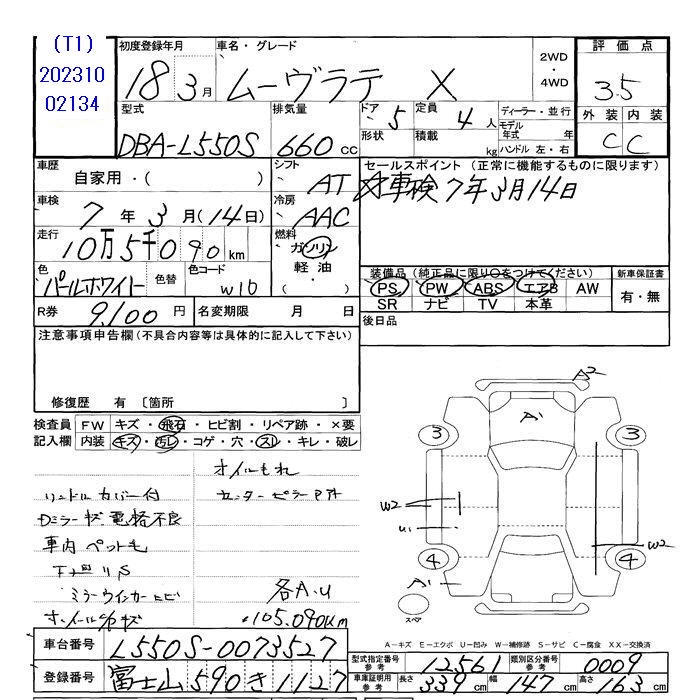 (T1)
202310
02134
初度登録年月
18 3月
車名・グレード
ムーヴラテ X
2WD
・
4WD
評価点
3.5
外装 内装
C C
型式
DBA-L550S
排気量
660 cc
ドア 5
形状
定員 4 人
積載 kg
ディーラー・並行
モデル年式 年
ハンドル 左・右
車歴
自家用・( )
シフト
AT
セールスポイント (正常に機能するものに限ります)
車検7年3月14日
車検
7年3月(14日)
冷房
AAC
走行
10万5千090km
燃料
ガソリン
軽油・
( )
色
パールホワイト
色替
色コード
W10
装備品(純正品に限り○をつけてください)
PS PW ABS エアB AW
SR ナビ TV 本革
新車保証書
有・無
R券 9,100円
名変期限 月 日
後日品
注意事項申告欄(不具合内容等は具体的に記入して下さい)
修復歴 有 〔箇所 〕
検査員 FW キズ・飛石・ヒビ割・リペア跡・×要
記入欄 内装 キズ・汚レ・コゲ・穴・スレ・キレ・破レ
オイルもれ
ハンドルカバー付
センターピラー
Dミラーキズ 電格不良
車内 ペット毛
下廻りS
ミラーウインカーヒビ
各A.U
ホイールキズ
105,090km
A2
A1
3 3
W2
U1
W2
4 4
A1
スペア
A-キズ E-エクボ U-凹み W-補修跡 S-サビ C-腐食 XX-交換済
車台番号 L550S-0073527
登録番号 富士山 590 き 1127
型式指定番号 参考 12561
類別区分番号 参考 0009
車庫証明用 参考 長さ 339cm 幅 147cm 高さ 163cm